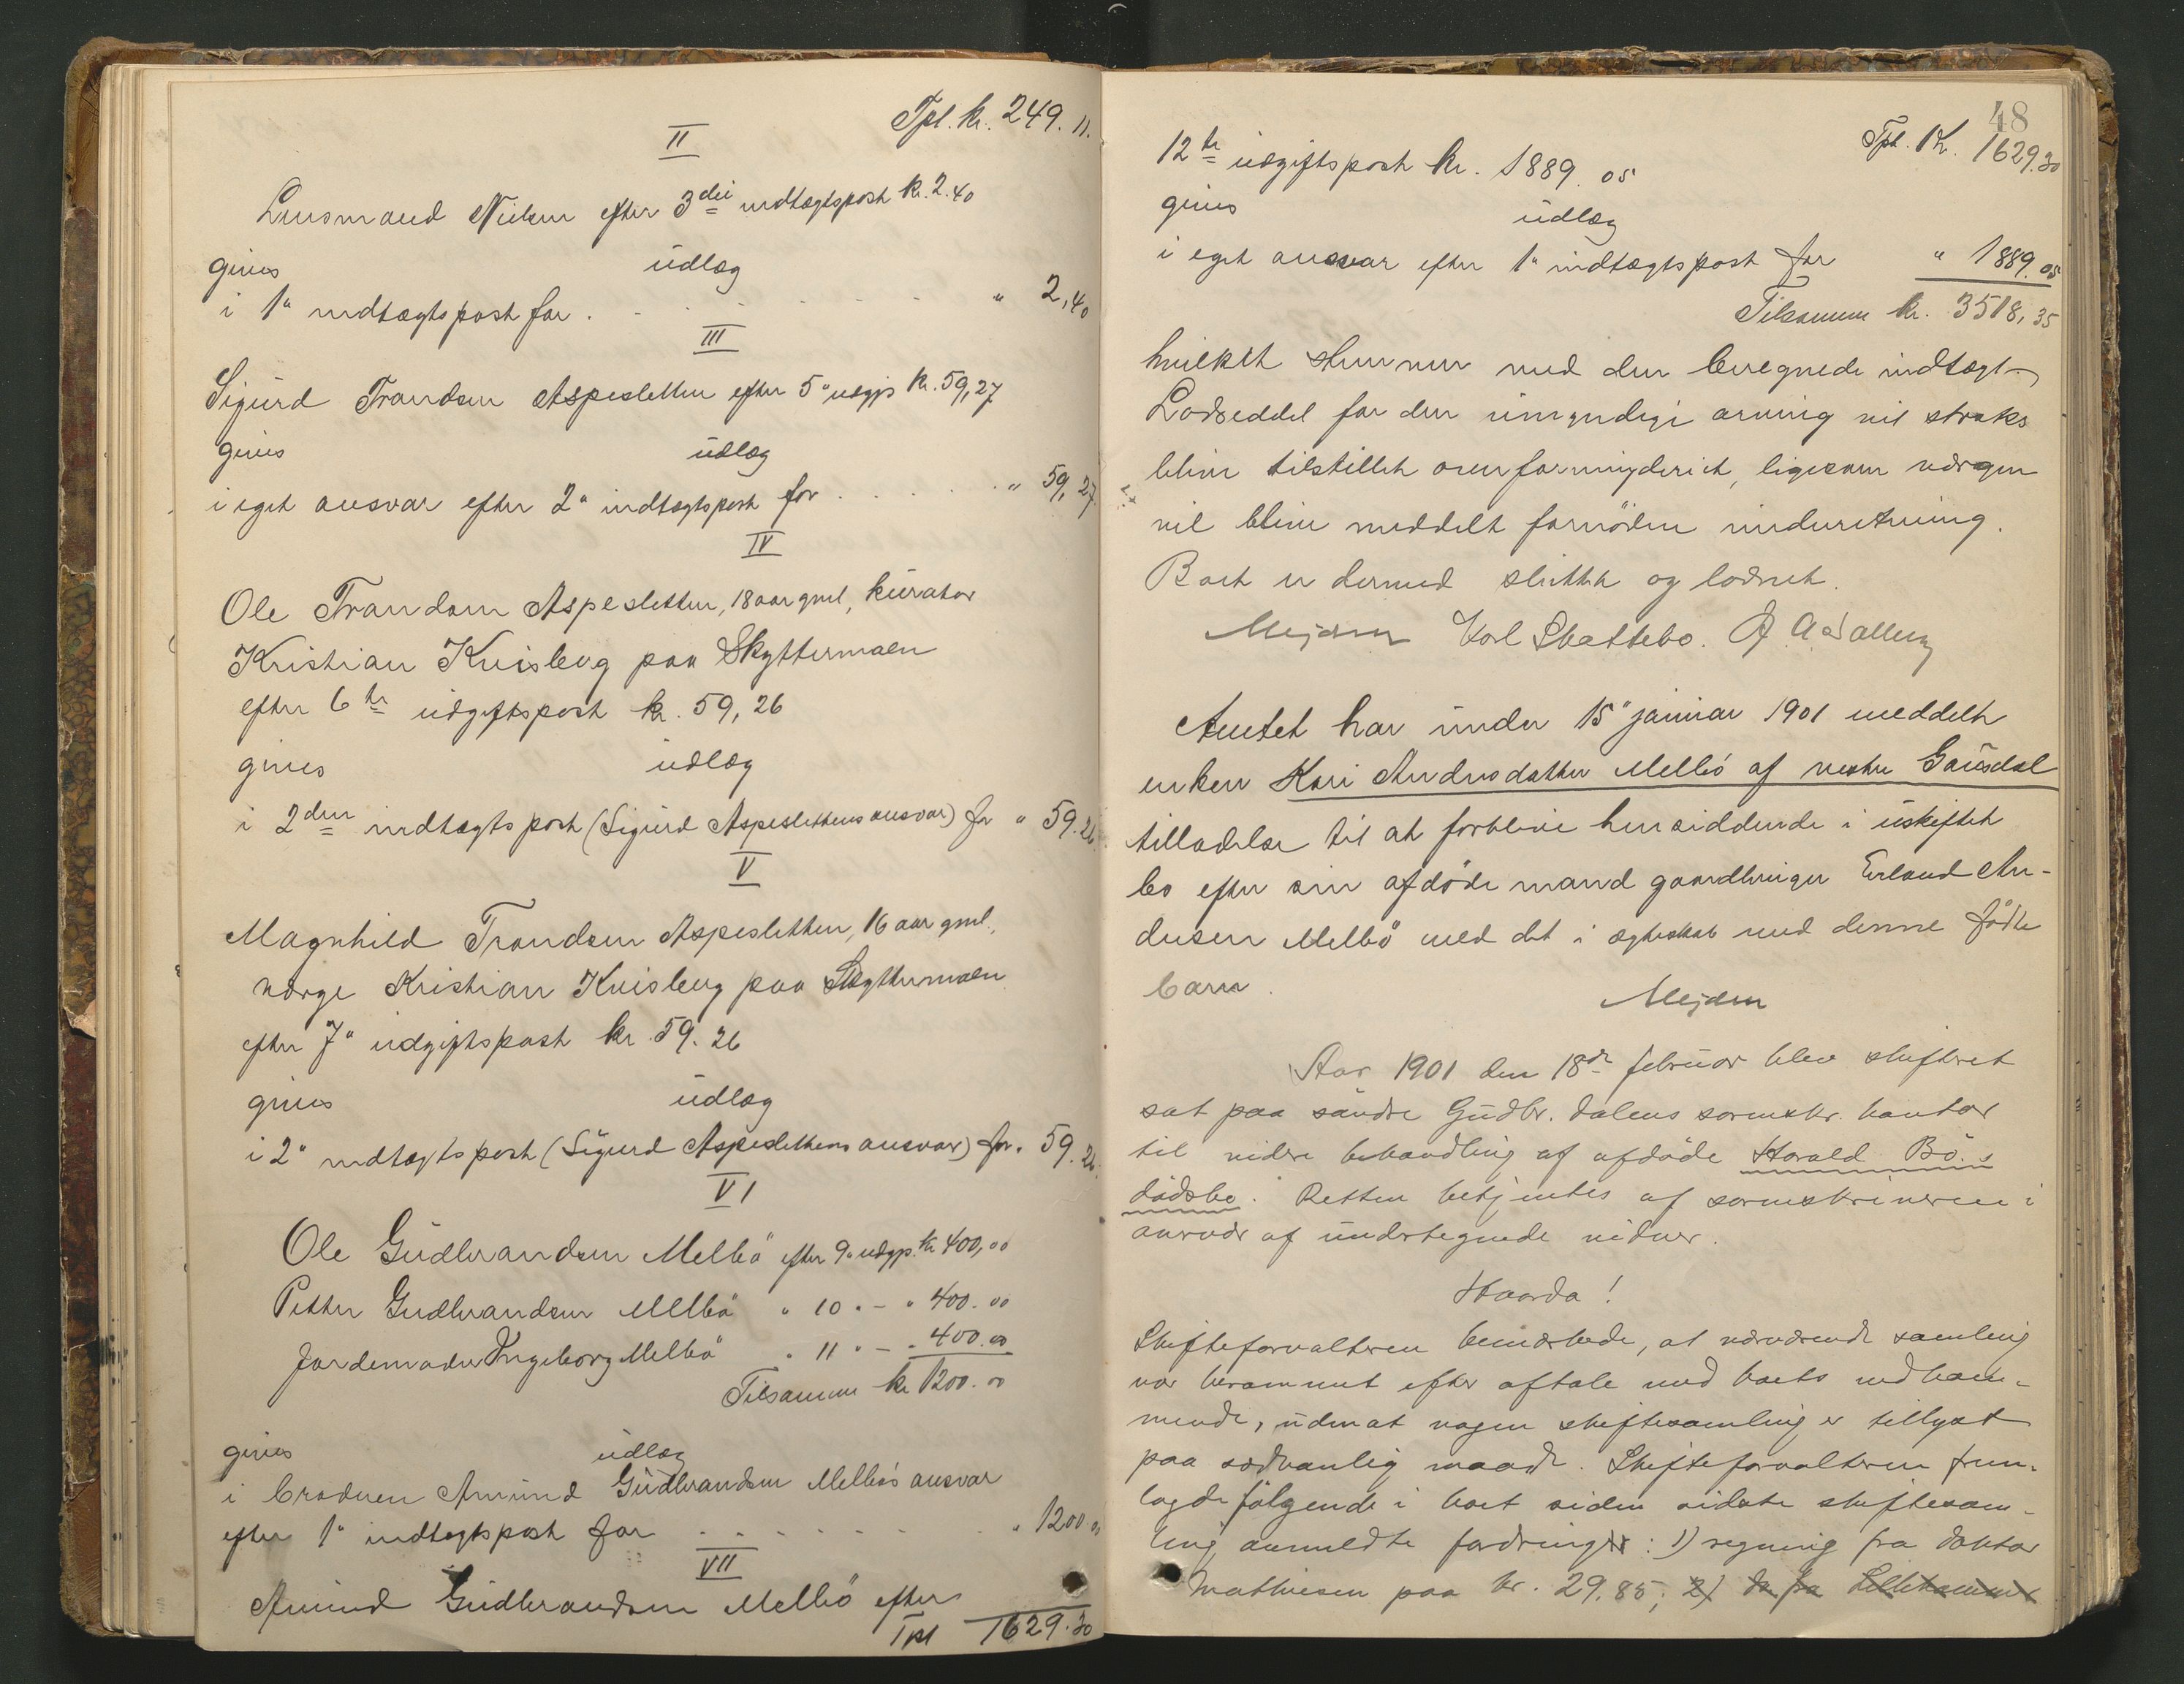 Tpl. kr. 249.11.
II
Lensmand Nielsen efter 3die indtægtspost kr. 2.40
gives udlæg
i 1" indtægtspost for . . . . . " 2,40
III
Sigurd Trondsen Aspesletten efter 5" udgp kr. 59,27
gives udlæg
i eget ansvar efter 2" indtægtspost for . . . . . " 59,27
IV
Ole Trondsen Aspesletten, 18 aar gml, kurator
Kristian Kvisberg paa Skyttermoen
efter 6te udgiftspost kr. 59,26
gives udlæg
i 2den indtægtspost (Sigurd Aspeslettens ansvar) for " 59.26
V
Magnhild Trondsen Aspesletten, 16 aar gml.,
værge Kristian Kvisberg paa Skyttermoen
efter 7" udgiftspost kr. 59.26
gives udlæg
i 2" indtægtspost (Sigurd Aspeslettens ansvar) for " 59.26
VI
Ole Gudbrandsen Melbö efter 9" udgp. kr 400,00
Petter Gudbrandsen Melbö " 10 " – " 400.00
Jordemoder Ingeborg Melbö " 11 " – " 400.00
Tilsammen kr 1200.00
gives udlæg
i broderen Amund Gudbrandsen Melbös ansvar
efter 1" indtægtspost for . . . . . " 1200.00
VII
Amund Gudbrandsen Melbö efter
Tpl 1629.30
48
Tpl. Kr. 1629.30
12te udgiftspost kr. 1889.05
gives udlæg
i eget ansvar efter 1" indtægtspost for " 1889.05
Tilsammen kr. 3518,35
hvilket stemmer med den beregnede indtægt.
Lodseddel for den umyndige arving vil straks
blive tilstillet overformynderiet, ligesom værgen
vil blive meddelt fornöden underretning.
Boet er dermed sluttet og loddet.
Mejdell Karl Skattebo.
Amtet har under 15" januar 1901 meddelt
enken Kari Andersdatter Melbö af vestre Gausdal
tilladelse til at forblive hensiddende i uskiftet
bo efter sin afdöde mand gaardbruger Erland An-
dersen Melbö med det i ægteskab med denne födte
barn. Mejdell
Aar 1901 den 18de februar blev skifteret
sat paa söndre Gudbr. dalens sorenskr. kontor
til videre behandling af afdöde Harald Bö.s
dödsbo. Retten betjentes af sorenskriveren i
nærvær af undertegnede vidner.
Haarda!
Skifteforvalteren bemærkede, at nærværende samling
var berammet efter aftale med boets vedkom-
mende, uden at nogen skiftesamling er tillyst
paa sædvanlig maade. Skifteforvalteren frem-
lagde fölgende i boet siden sidste skiftesam-
ling anmeldte fordringer: 1) regning fra doktor
Mathiesen paa kr. 29.85; 2) do fra Lillehammer